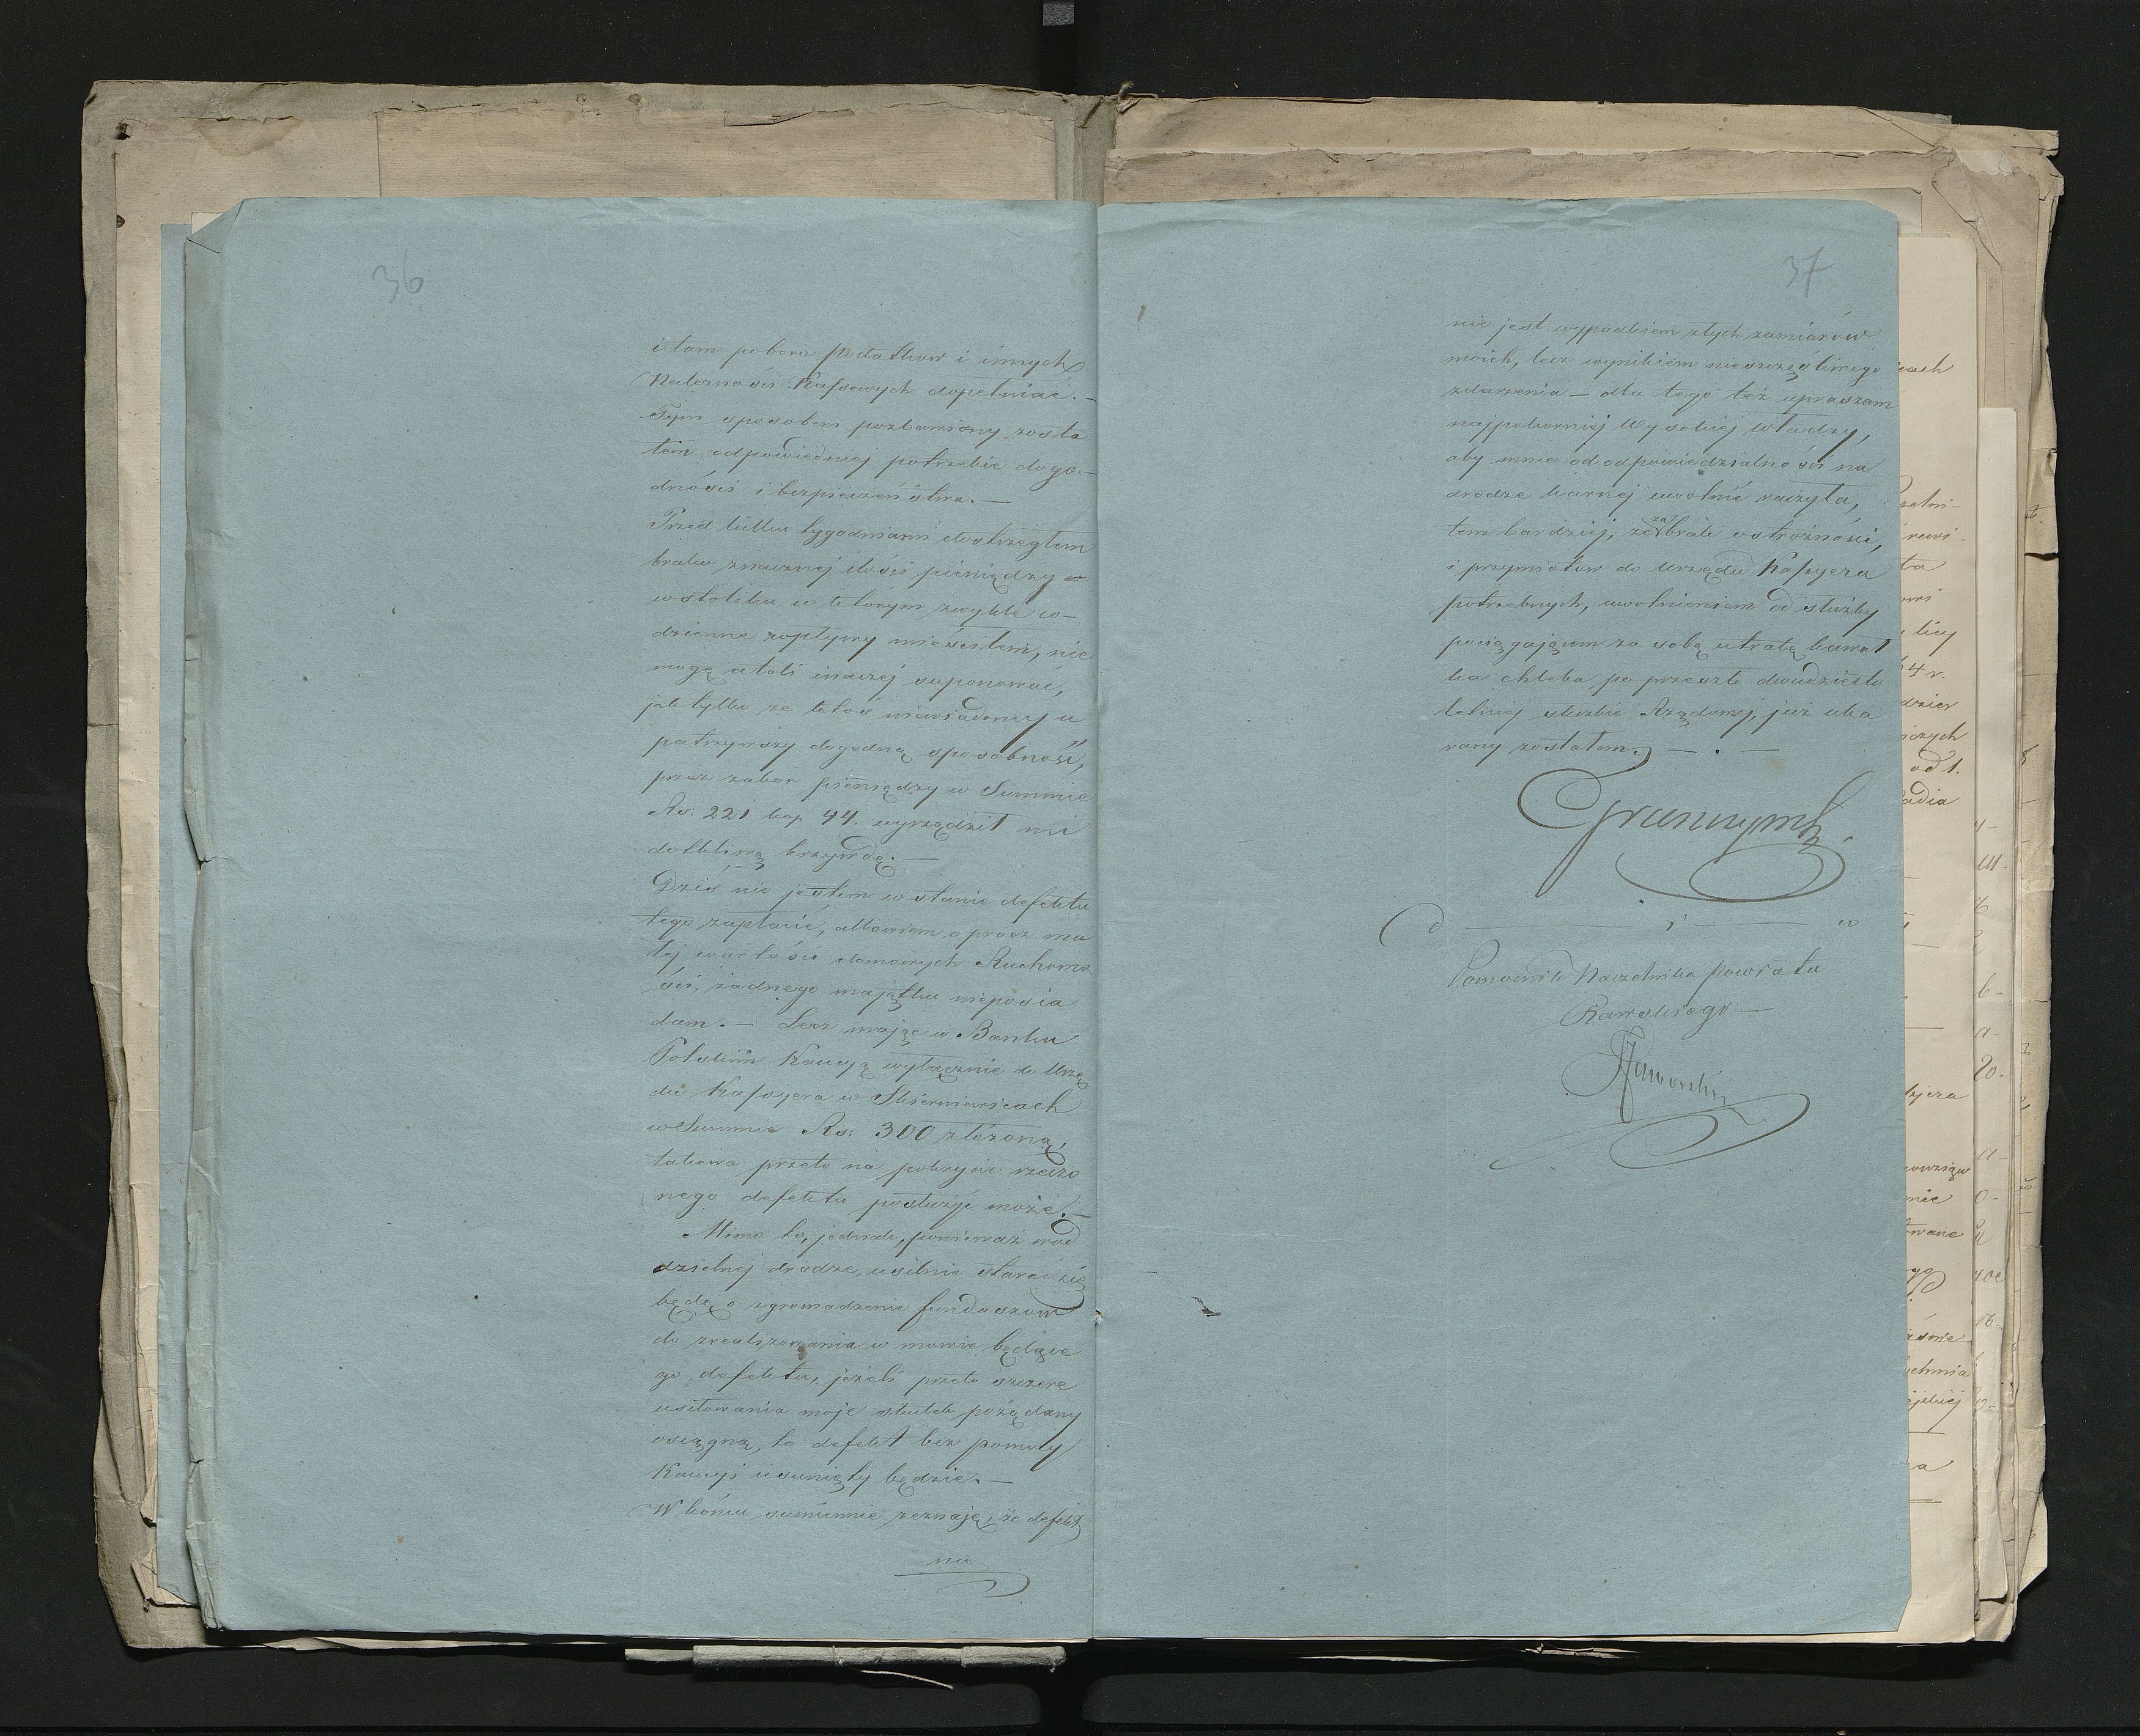 36
i tam poboru podatków i innych
Należności Kassowych dopełniać. —
Tym sposobem pozbawiony zosta
łem odpowiedniej potrzebie dogo-
dności i bezpieczeństwa. —
Przed kilku tygodniami dostrzegłem
braku znacznej ilości pieniędzy
w stoliku w którym zwykle co-
dzienne wpływy mieściłem, nie
mogę atoli inaczej suponować,
jak tylko że ktoś niewiadomy u
patrzywszy dogodną sposobność,
przez zabor pieniędzy w Summie
Rs. 221 kop 44. wyrządził mi
dotkliwą krzywdę. —
Dziś nie jestem w stanie defektu
tego zapłacić, albowiem oprócz ma
łej wartości domowych Ruchomo
ści, żadnego majątku nieposia
dam. — Lecz mając w Banku
Polskim Kaucyą wyłącznie do Urzę
du Kassyera w Skierniewicach
w Summie Rs. 300 złożoną,
takowa przeto na pokrycie rzeczo
nego defektu posłużyć może. —
Mimo to, jednak, ponieważ w od
dzielnej drodze, usilnie starać się
będę o zgromadzenie funduszów
do zrealizowania w mowie będące
go defektu, jeżeli przeto szczere
usiłowania moje skutek pożądany
osiągną, to defekt bez pomocy
Kaucyi usunięty będzie. —
W końcu sumiennie zeznaję, że defekt
nie
37
nie jest wypadkiem złych zamiarów
moich, lecz wynikiem nieszczęśliwego
zdarzenia — dla tego też upraszam
najpokorniej Wysokiej Władzy,
aby mnie od odpowiedzialności na
drodze karnej uwolnić raczyła,
tem bardziej, że za brak ostrożności,
i przymiotów do Urzędu Kassyera
potrzebnych, uwolnieniem od służby
pociągającym za sobą utratę kawał
ka chleba po przeszło dwudziesto
letniej służbie Rządowej, już uka
rany zostałem. — . —
Pomocnik Naczelnika Powiatu
Rawskiego —
Jaworski